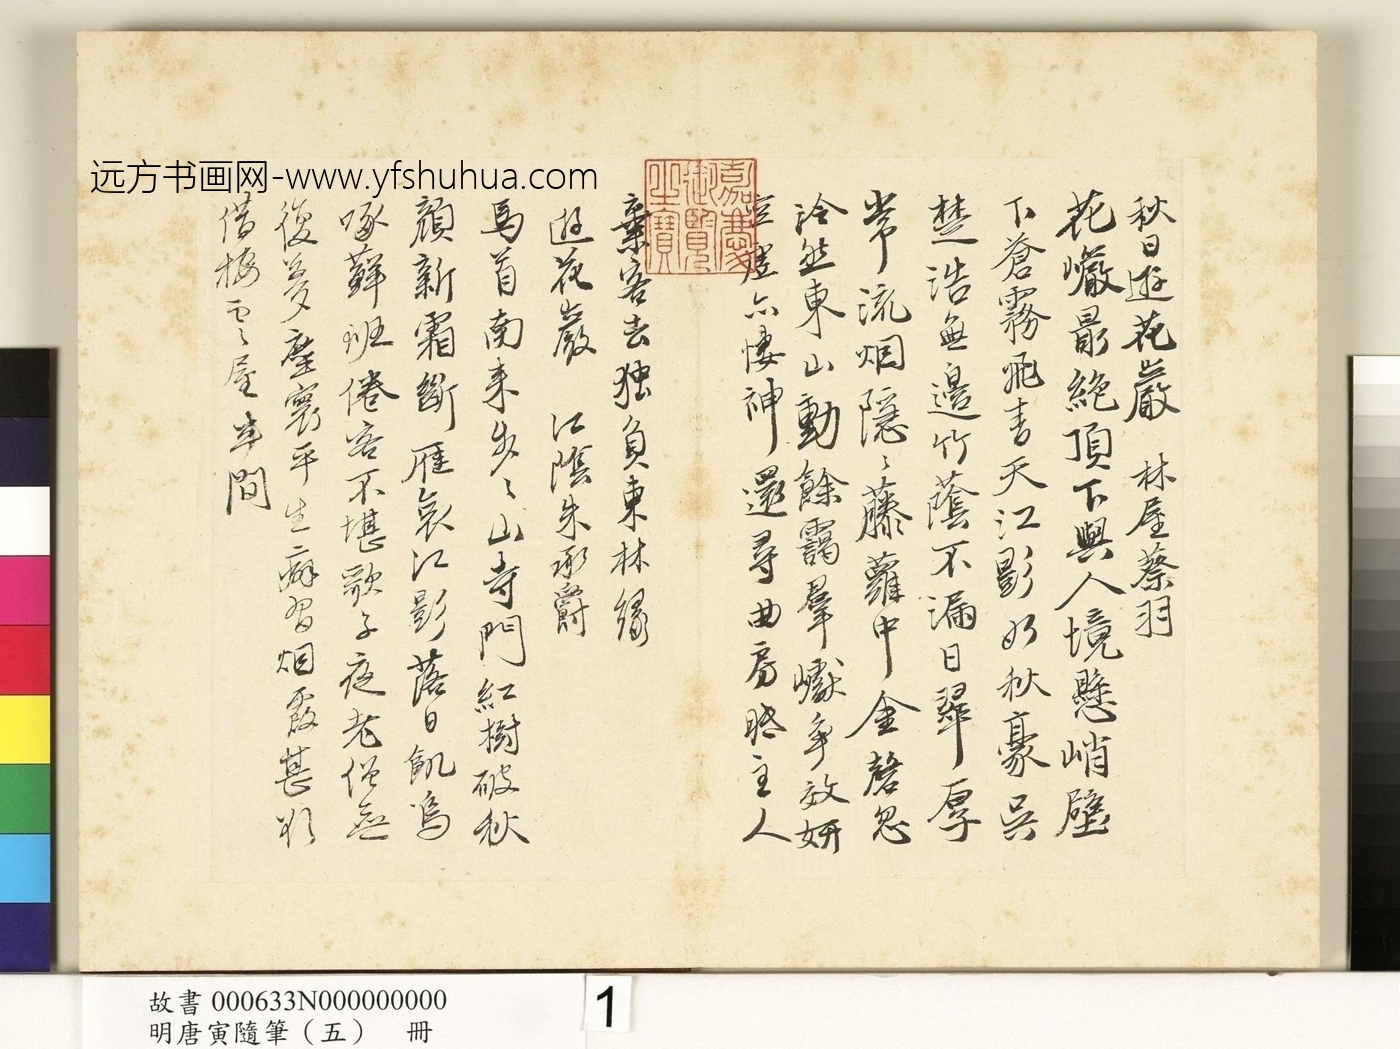 远方书画网-www.yfshuhua.com
嘉慶
御覽
之寶
秋日遊花巖 林屋蔡羽
花巘最絶頂下與人境懸峭壁
下蒼霧飛書天江影如秋豪吳
楚浩無邊竹蔭不漏日翠厚
常流烟隱〻藤蘿中金磬忽
泠然東山動餘靄羣巘爭效妍
崖亦悽神還尋曲房眠主人
棄客去独負東林緣
遊花巖 江陰朱承爵
馬首南來步〻山寺門紅樹破秋
顔新霜斷雁哀江影落日飢烏
啄蘚班倦客不堪歌子夜老僧無
復夢塵寰平生癖習烟霞甚
借梅雲屋半間
故書 000633N000000000
明唐寅隨筆（五） 冊
1